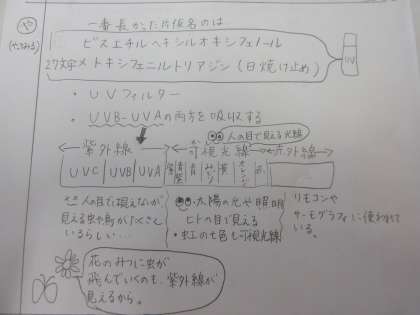 一番長かった片仮名のは
ビスエチルヘキシルオキシフェノール
27文字メトキシフェニルトリアジン(日焼け止め)
UV
・UVフィルター
・UVB-UVAの両方を吸収する
人の目で見える光線
紫外線 可視光線 赤外線
UVC UVB UVA 紫 青 黄 赤
人の目で見えないが
見える虫や鳥がたくさん
いるらしい…
太陽の光や照明
ヒトの目で見える
・虹の七色も可視光線
リモコンや
サーモグラフィに使われて
いる。
花のみつに虫が
飛んでいくのも、紫外線が
見えるから。